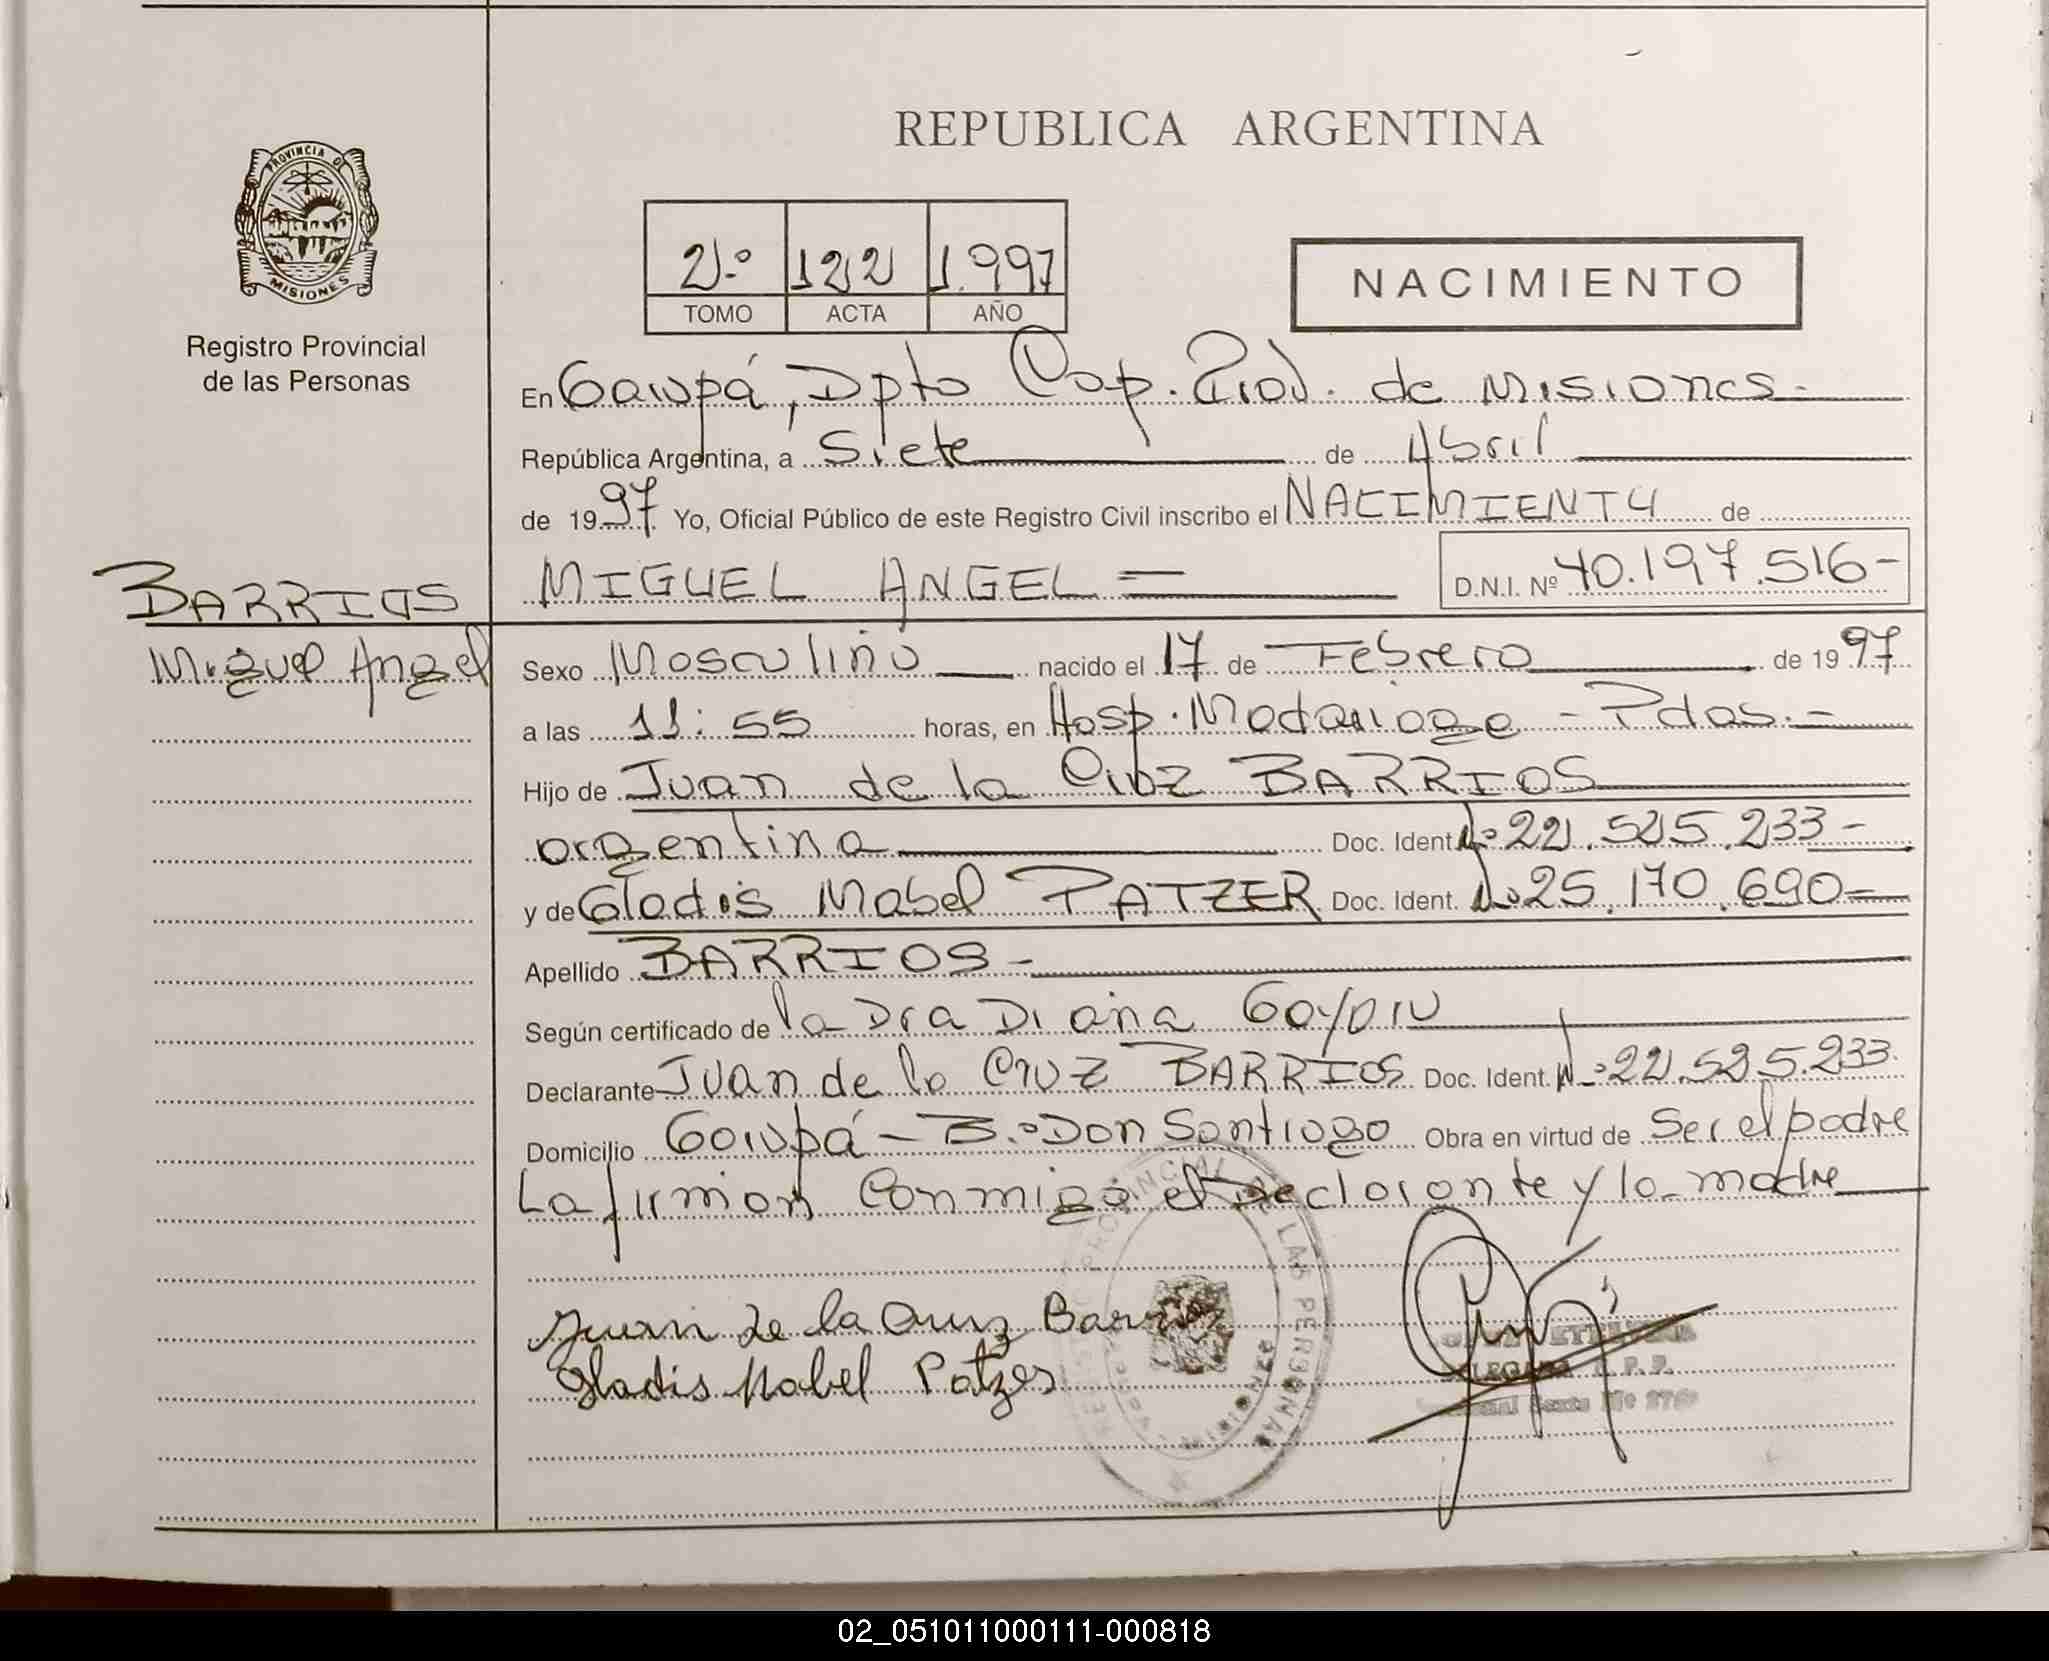 REPUBLICA ARGENTINA
PROVINCIA DE
MISIONES
Registro Provincial
de las Personas
2.º 122 1.997
TOMO ACTA AÑO
NACIMIENTO
En Garupá, Dpto Cap. Prov. de Misiones.-
República Argentina, a Siete de Abril
de 1997 Yo, Oficial Público de este Registro Civil inscribo el NACIMIENTO de
MIGUEL ANGEL = D.N.I. Nº 40.197.516-
BARRIOS
Miguel Angel
Sexo Masculino nacido el 17 de Febrero de 1997
a las 11:55 horas, en Hosp. Madariaga - Pdas.-
Hijo de Juan de la Cruz BARRIOS
argentina Doc. Ident. Nº 22.525.233-
y de Gladis Mabel PATZER Doc. Ident. Nº 25.170.690=
Apellido BARRIOS-
Según certificado de la Dra Diana
Declarante Juan de la Cruz BARRIOS Doc. Ident. Nº 22.525.233.
Domicilio Garupá - B.º Don Santiago Obra en virtud de Ser el padre
La firman Conmigo el Declarante y la madre
Juan de la Cruz Barrios
Gladis Mabel Patzer
PROVINCIAL DE LAS PERSONAS
02_051011000111-000818